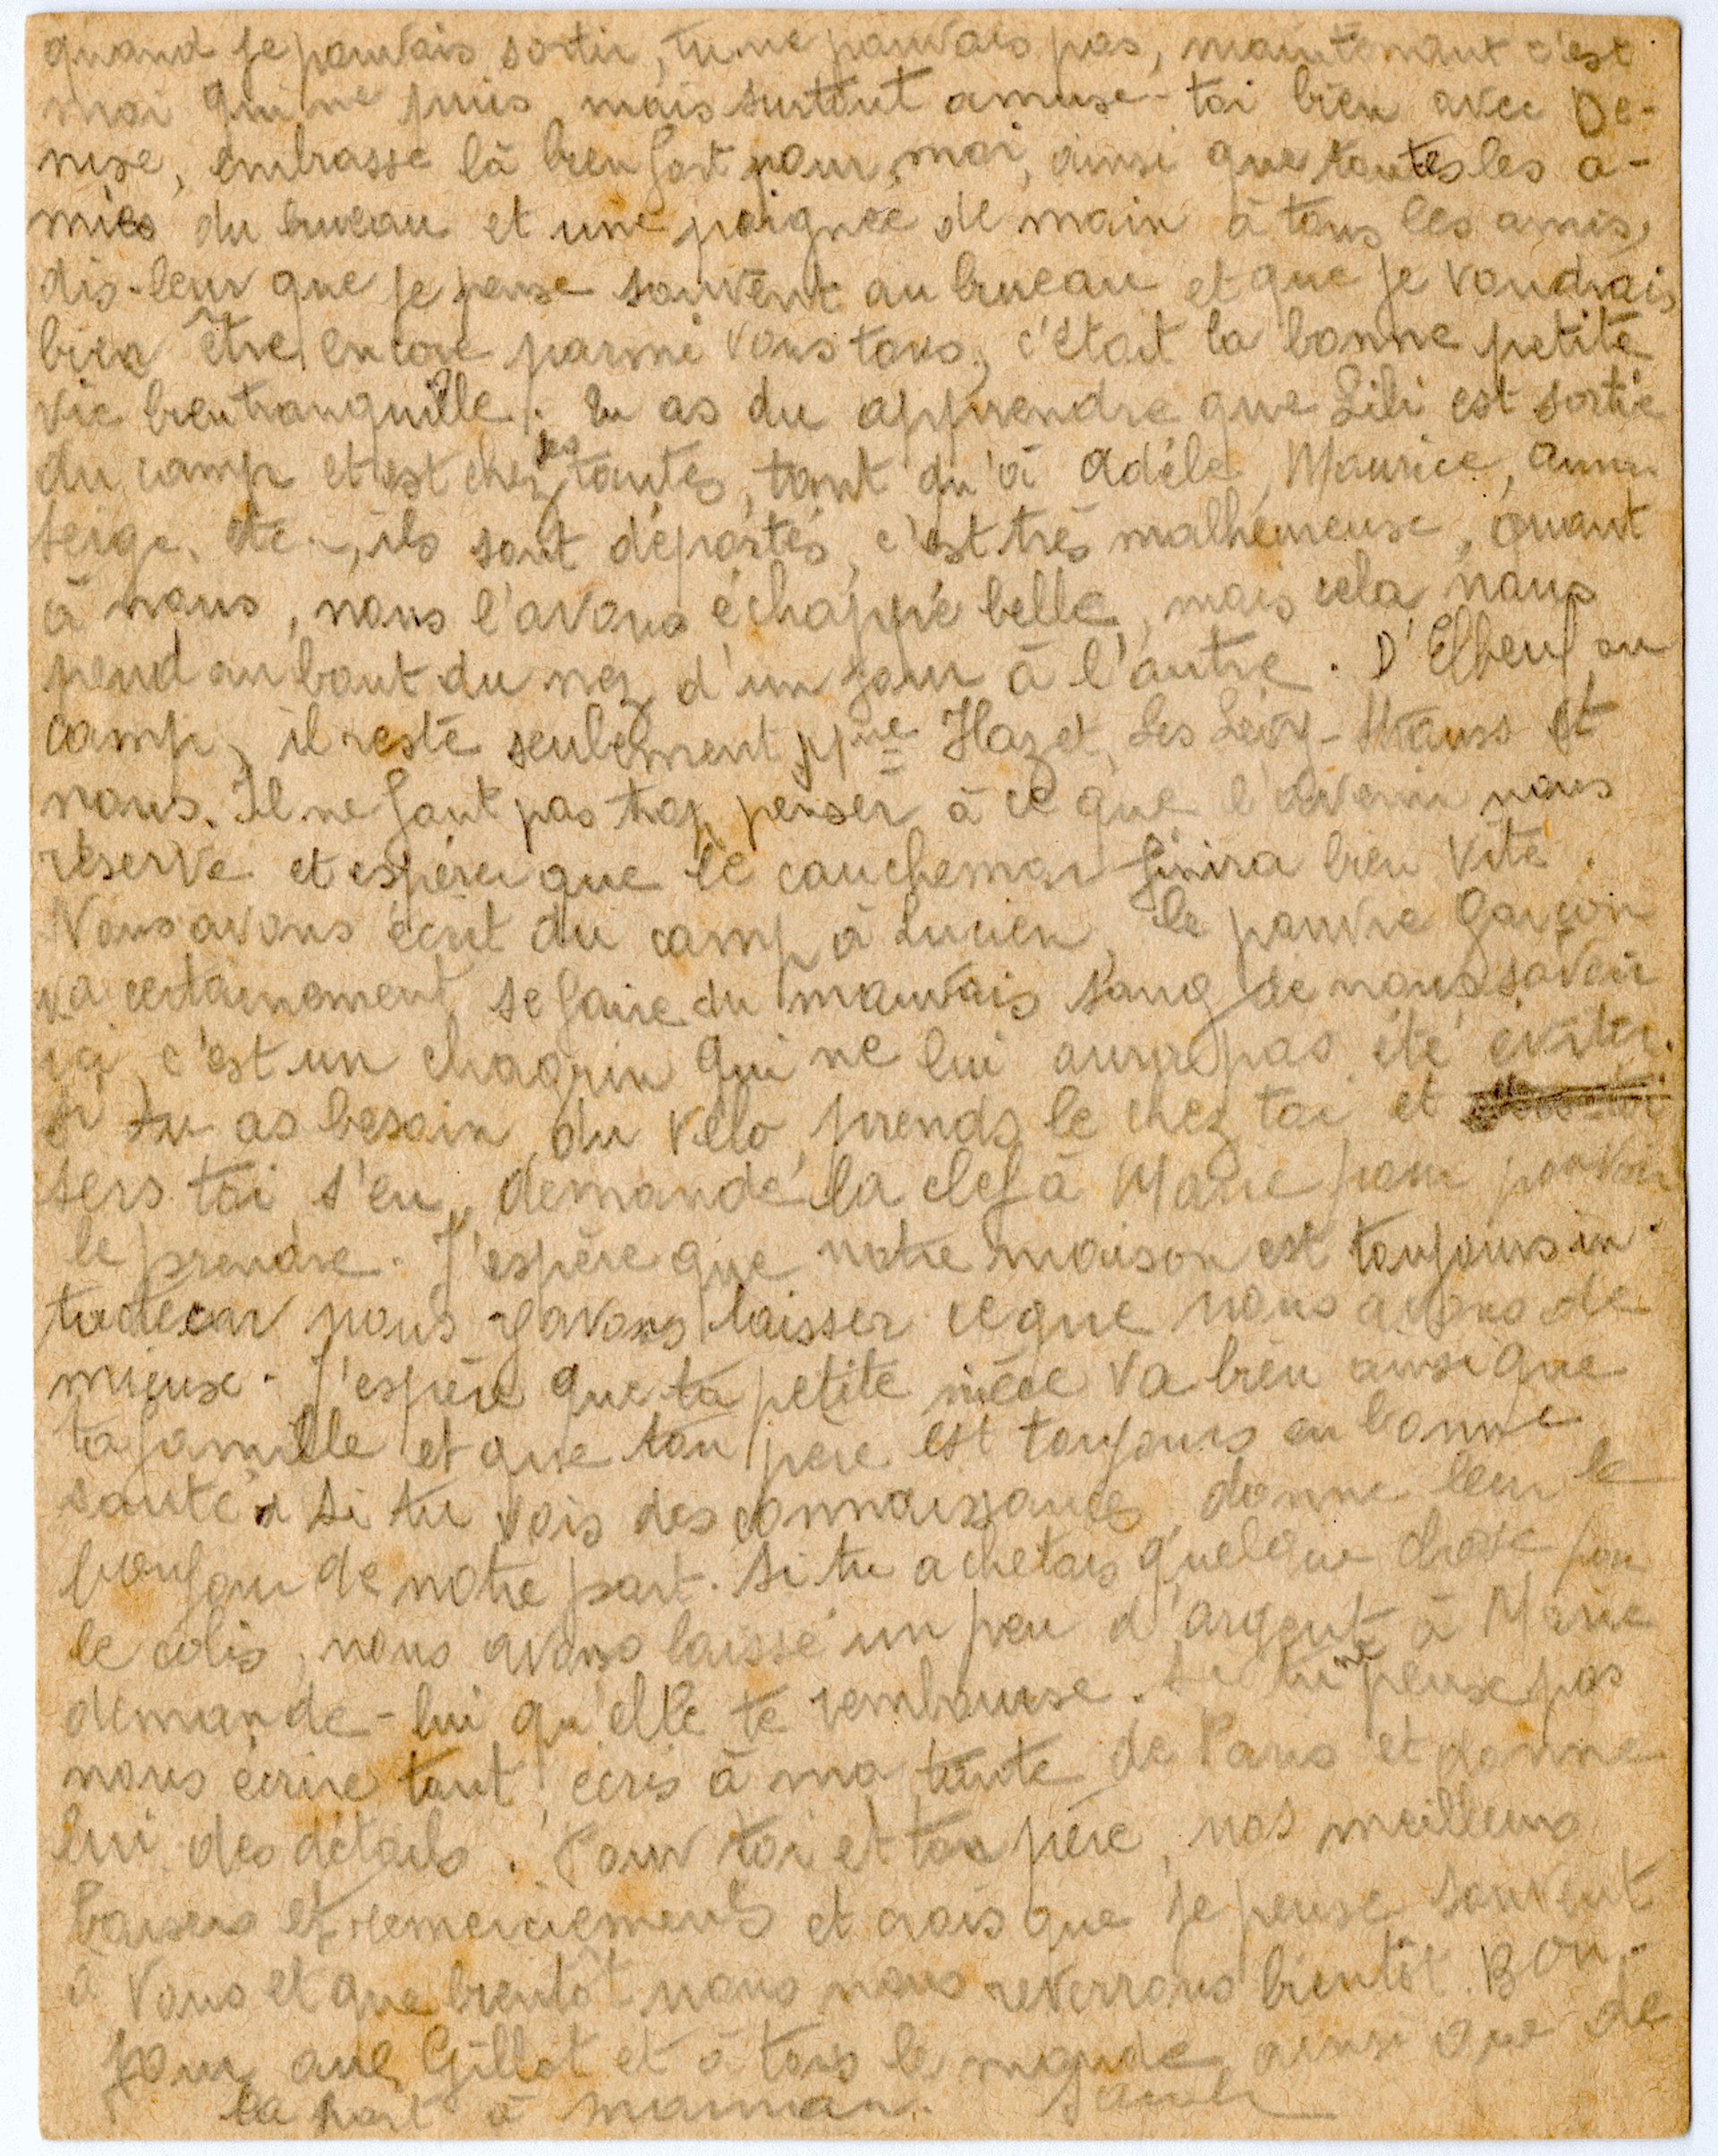 quand je pouvais sortir, tu ne pouvais pas, maintenant c'est
moi qui ne puis mais surtout amuse-toi bien avec De-
nise, embrasse là bien fort pour moi, ainsi que toutes les a-
mies du bureau et une poignée de main à tous les amis,
dis-leur que je pense souvent au bureau et que je voudrais
bien être encore parmi vous tous, c'était la bonne petite
vie bien tranquille. Tu as du apprendre que Lili est sortie
du camp et est chez ses tantes, tant qu'à Adèle, Maurice,
Serge, etc.., ils sont déportés, c'est très malheureuse, quant
à nous, nous l'avons échappé belle, mais cela nous
pend au bout du nez d'un jour à l'autre. D'Elbeuf au
camp, il reste seulement Hazet, les Lévy-Strauss et
nous. Il ne faut pas trop penser à ce que l'avenir nous
réserve et espérer que le cauchemar finira bien vite.
Nous avons écrit du camp à Lucien, le pauvre garçon
va certainement se faire du mauvais sang de nous savoir
ici, c'est un chagrin qui ne lui aura pas été éviter.
Si tu as besoin du vélo, prends le chez toi et
sers toi s'en, demande la clef à Marie pour pouvoir
le prendre. J'espère que notre maison est toujours in-
tacte car nous y avons laisser ce que nous avons de
mieux. J'espère que ta petite nièce va bien ainsi que
ta famille et que ton père est toujours en bonne
santé. Si tu vois des connaissances donne leur le
bonjour de notre part. Si tu achetais quelque chose pour
le colis, nous avons laissé un peu d'argent à Marie
demande-lui qu'elle te rembourse. Si tu ne peuse pas
nous écrire tout, écris à ma tante de Paris et donne
lui des détails. Pour toi et ton père, nos meilleurs
baisers et remerciements et crois que je pense souvent
à vous et que bientôt nous nous reverrons bientôt. Bon-
jour aux Gillot et à tous le monde ainsi que de
la part à maman.